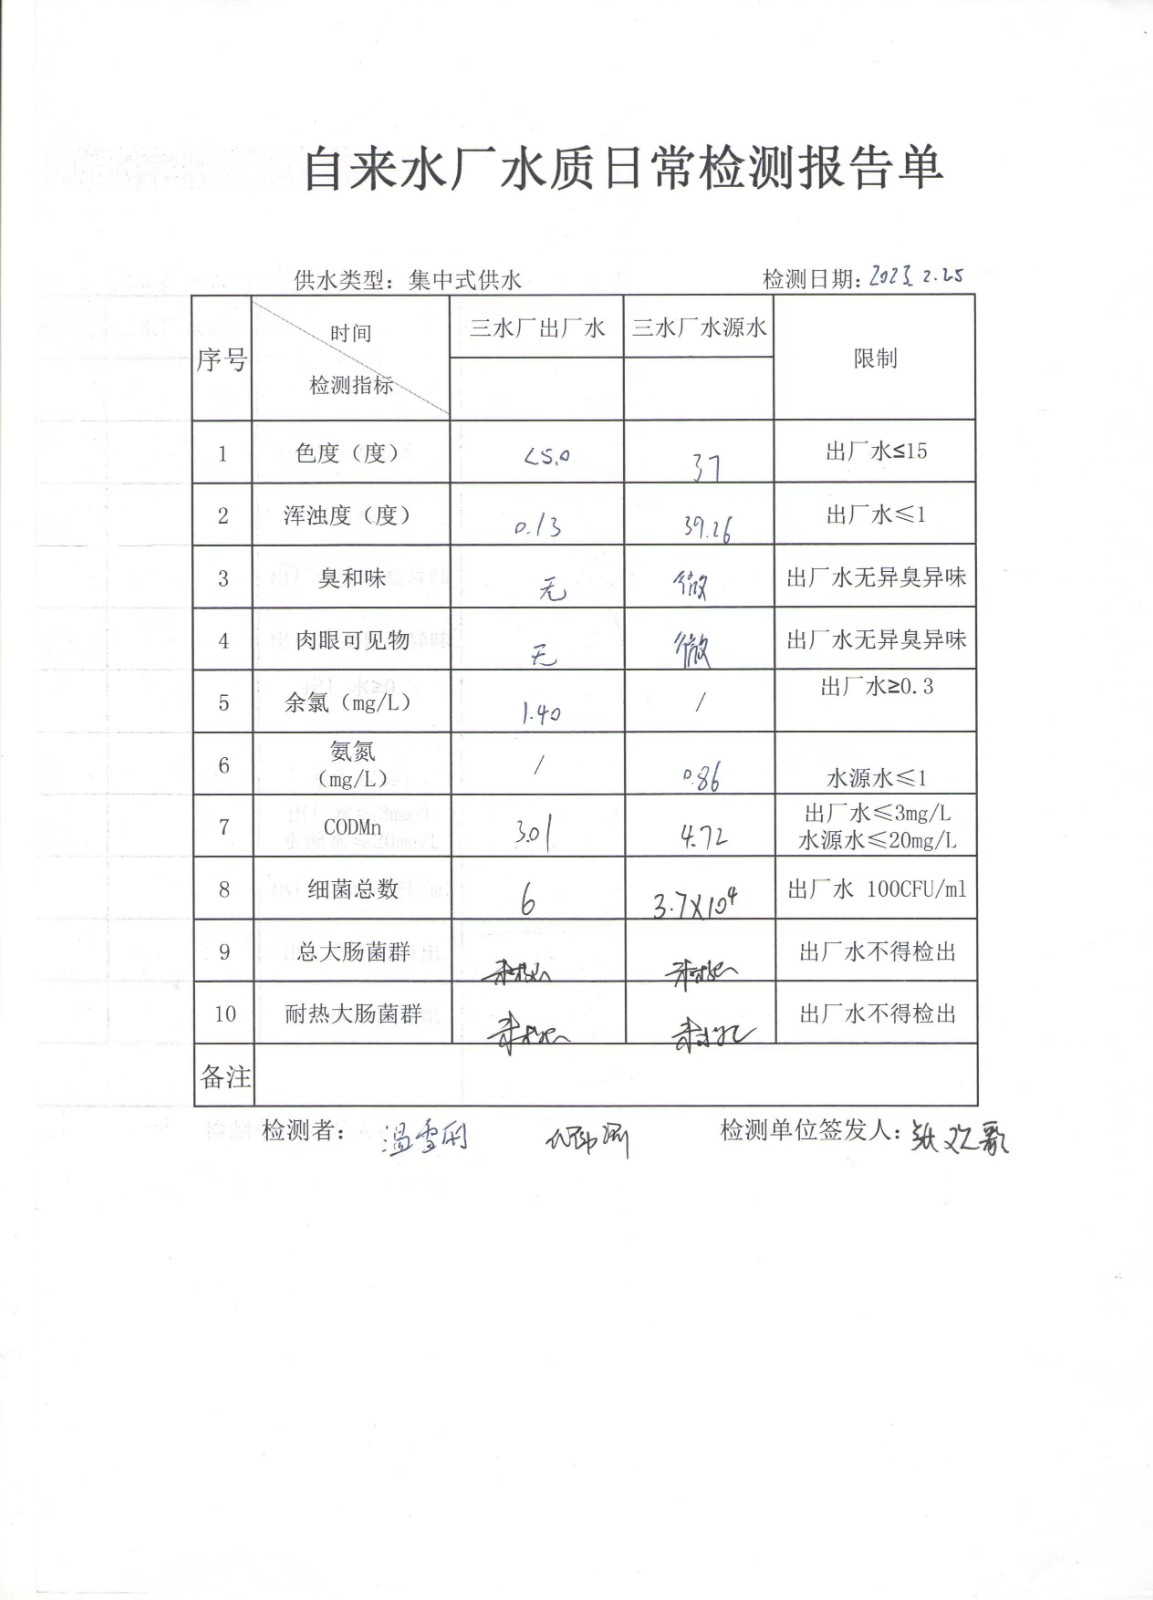 自来水厂水质日常检测报告单
供水类型：集中式供水 检测日期：2023.2.25
序号 时间 检测指标 三水厂出厂水 三水厂水源水 限制
1 色度（度） <5.0 37 出厂水≤15
2 浑浊度（度） 0.13 39.26 出厂水≤1
3 臭和味 无 微 出厂水无异臭异味
4 肉眼可见物 无 微 出厂水无异臭异味
5 余氯（mg/L） 1.40 / 出厂水≥0.3
6 氨氮（mg/L） / 0.86 水源水≤1
7 CODMn 3.01 4.72 出厂水≤3mg/L
水源水≤20mg/L
8 细菌总数 6 3.7X10⁴ 出厂水 100CFU/ml
9 总大肠菌群 未检出 未检出 出厂水不得检出
10 耐热大肠菌群 未检出 未检出 出厂水不得检出
备注
检测者： 温雪雨 检测单位签发人：张